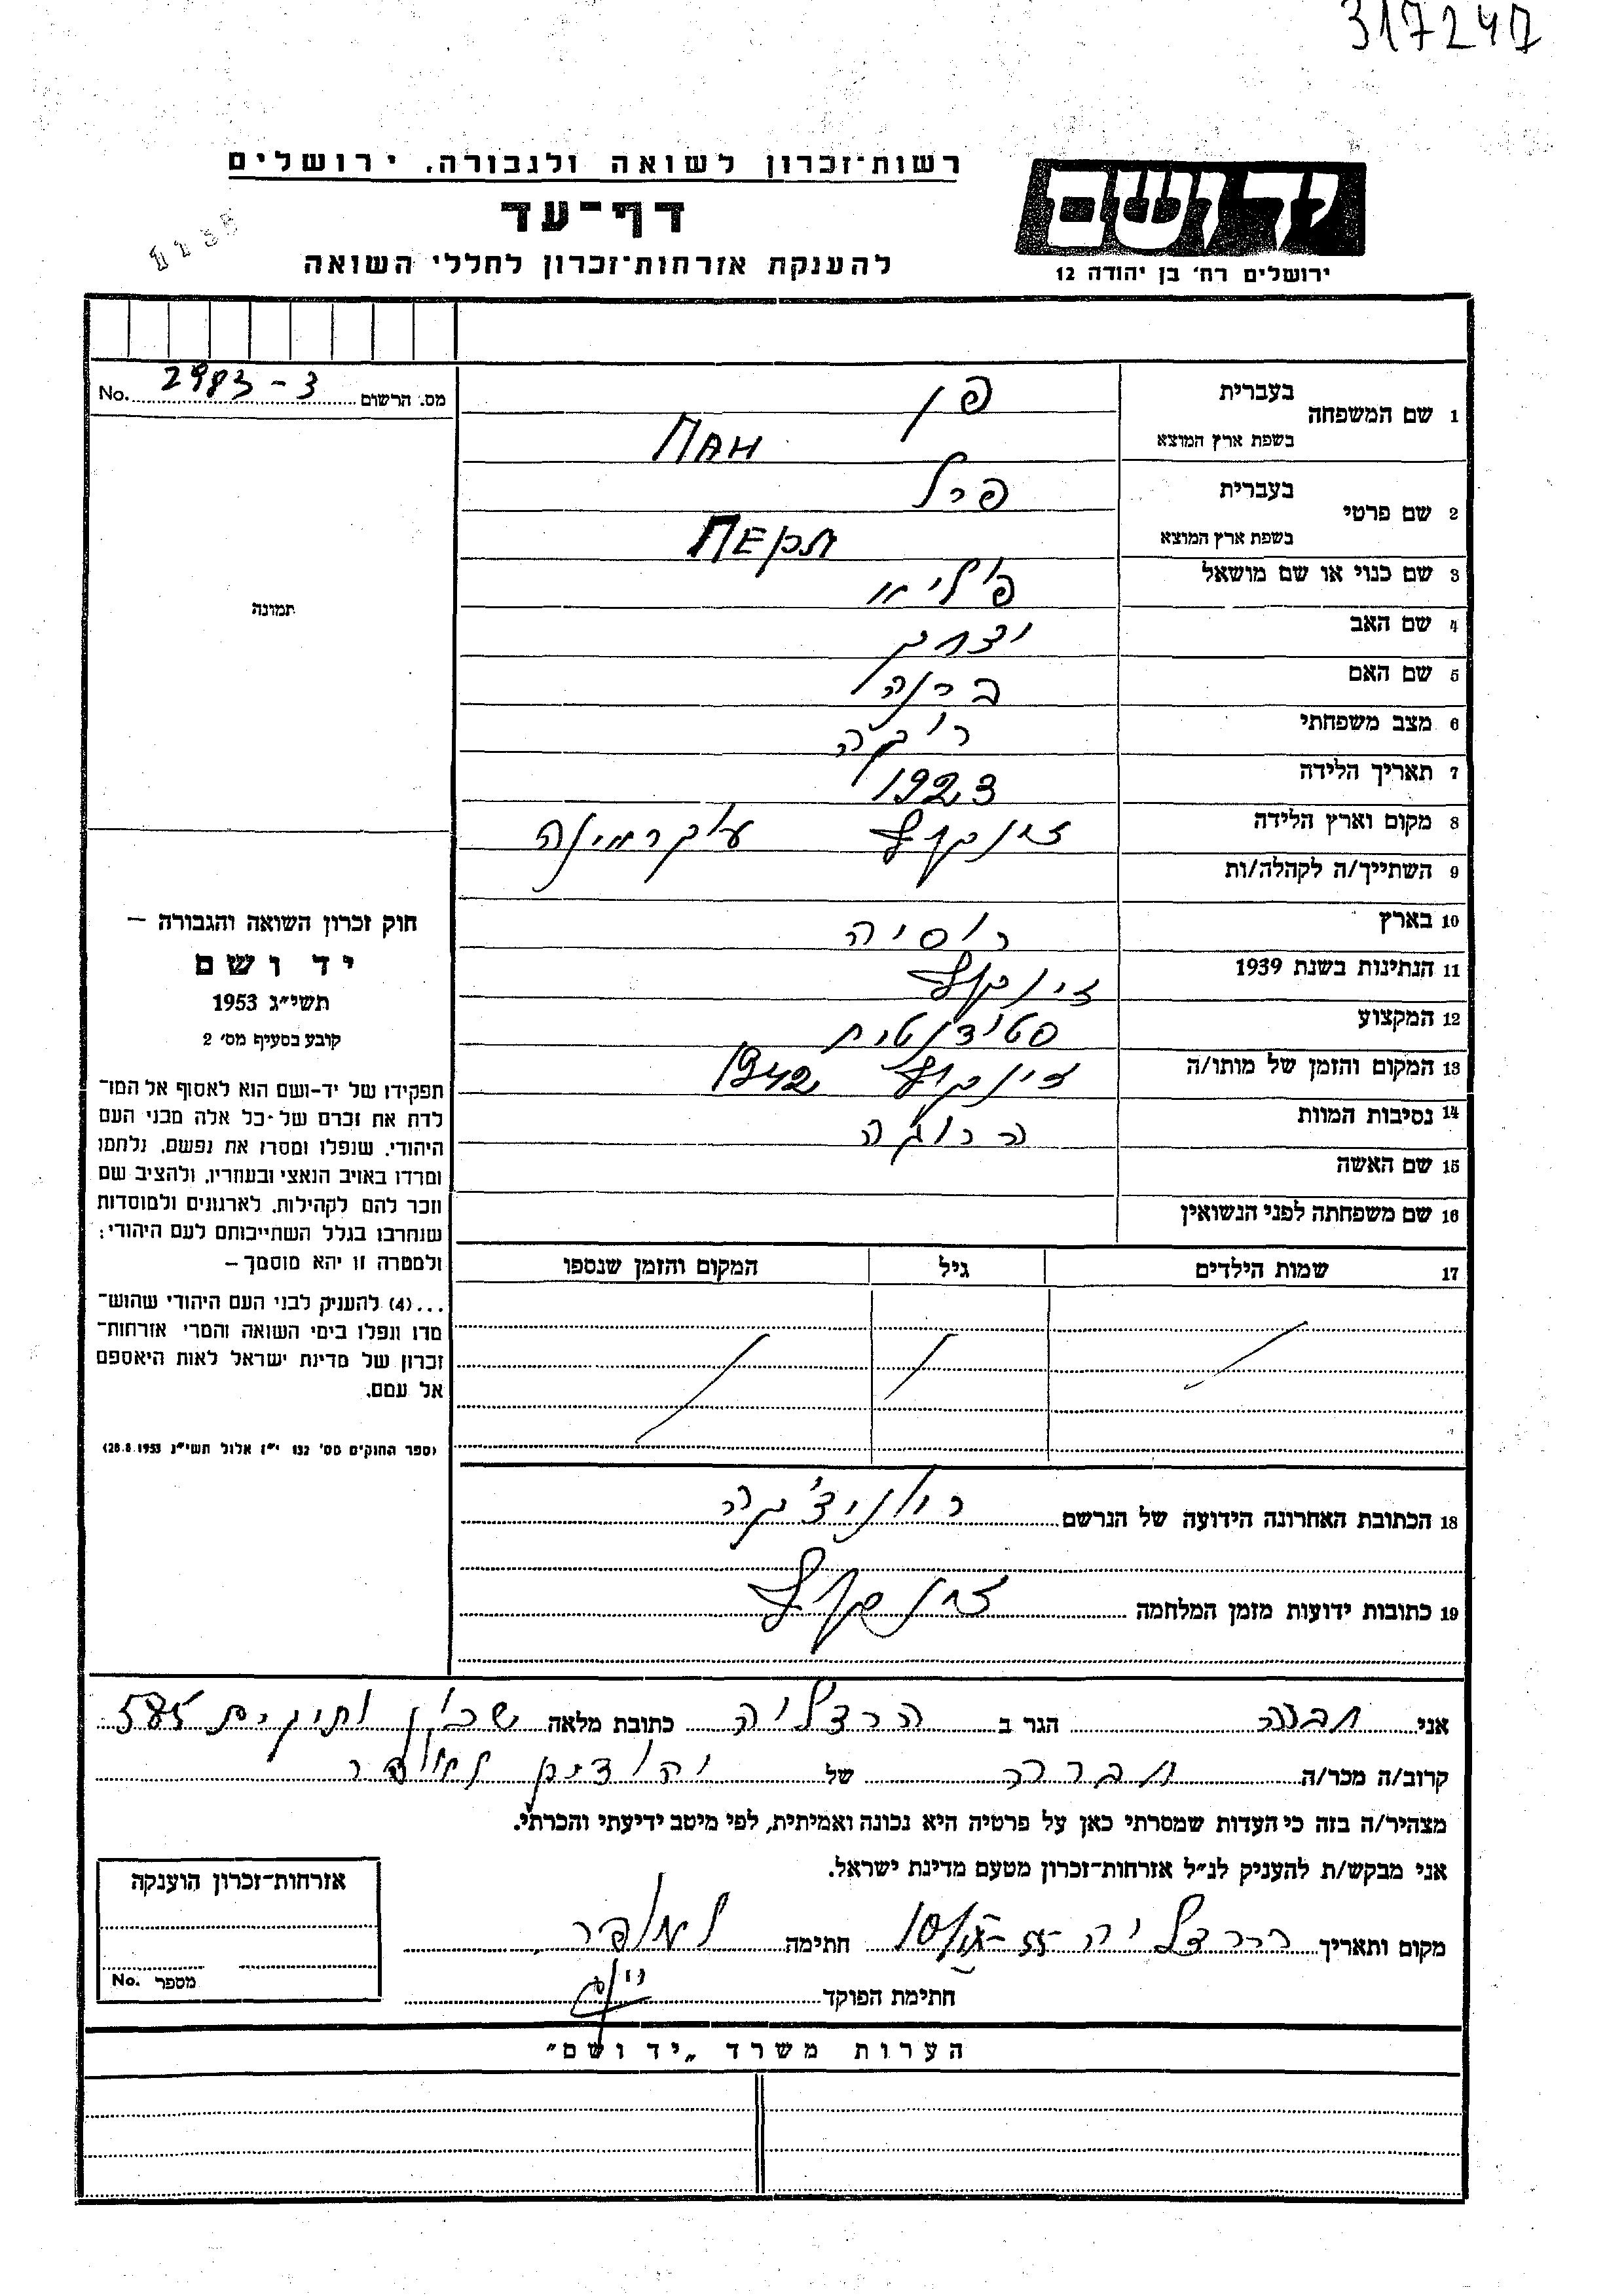 317247
רשות־זכרון לשואה ולגבורה, ירושלים
דף־עד
להענקת אזרחות־זכרון לחללי השואה
יד ושם
ירושלים רח' בן יהודה 12
מס. הרשום 2983-3 No.
1 שם המשפחה בעברית פן
בשפת ארץ המוצא ПАН
2 שם פרטי בעברית פרל
בשפת ארץ המוצא
3 שם כנוי או שם מושאל
4 שם האב יצחק
5 שם האם
6 מצב משפחתי רוקה
7 תאריך הלידה 1923
8 מקום וארץ הלידה זינקוב אוקראינה
9 השתייך/ה לקהלה/ות
10 בארץ רוסיה
11 הנתינות בשנת 1939 זינקוב
12 המקצוע סטודנטית
13 המקום והזמן של מותו/ה זינקוב 1942
14 נסיבות המוות הרוגה
15 שם האשה
16 שם משפחתה לפני הנשואין
17 שמות הילדים גיל המקום והזמן שנספו
18 הכתובת האחרונה הידועה של הנרשם
19 כתובות ידועות מזמן המלחמה
תמונה
חוק זכרון השואה והגבורה –
יד ושם
תשי״ג 1953
קובע בסעיף מס' 2
תפקידו של יד-ושם הוא לאסוף אל המו־
לדת את זכרם של כל אלה מבני העם
היהודי, שנפלו ומסרו את נפשם, נלחמו
ומרדו באויב הנאצי ובעוזריו, ולהציב שם
וזכר להם לקהילות, לארגונים ולמוסדות
שנחרבו בגלל השתייכותם לעם היהודי;
ולמטרה זו יהא מוסמך –
...(4) להעניק לבני העם היהודי שהוש־
מדו ונפלו בימי השואה והמרי אזרחות־
זכרון של מדינת ישראל לאות היאספם
אל עמם.
(ספר החוקים מס' 132 י״ז אלול תשי״ג 28.8.1953)
אני הגר ב הרצליה כתובת מלאה שכון ותיקים 585
קרוב/ה מכר/ה חברה של
מצהיר/ה בזה כי העדות שמסרתי כאן על פרטיה היא נכונה ואמיתית, לפי מיטב ידיעתי והכרתי.
אני מבקש/ת להעניק לנ״ל אזרחות־זכרון מטעם מדינת ישראל.
מקום ותאריך הרצליה חתימה
חתימת הפוקד
אזרחות־זכרון הוענקה
מספר No.
הערות משרד „יד ושם״